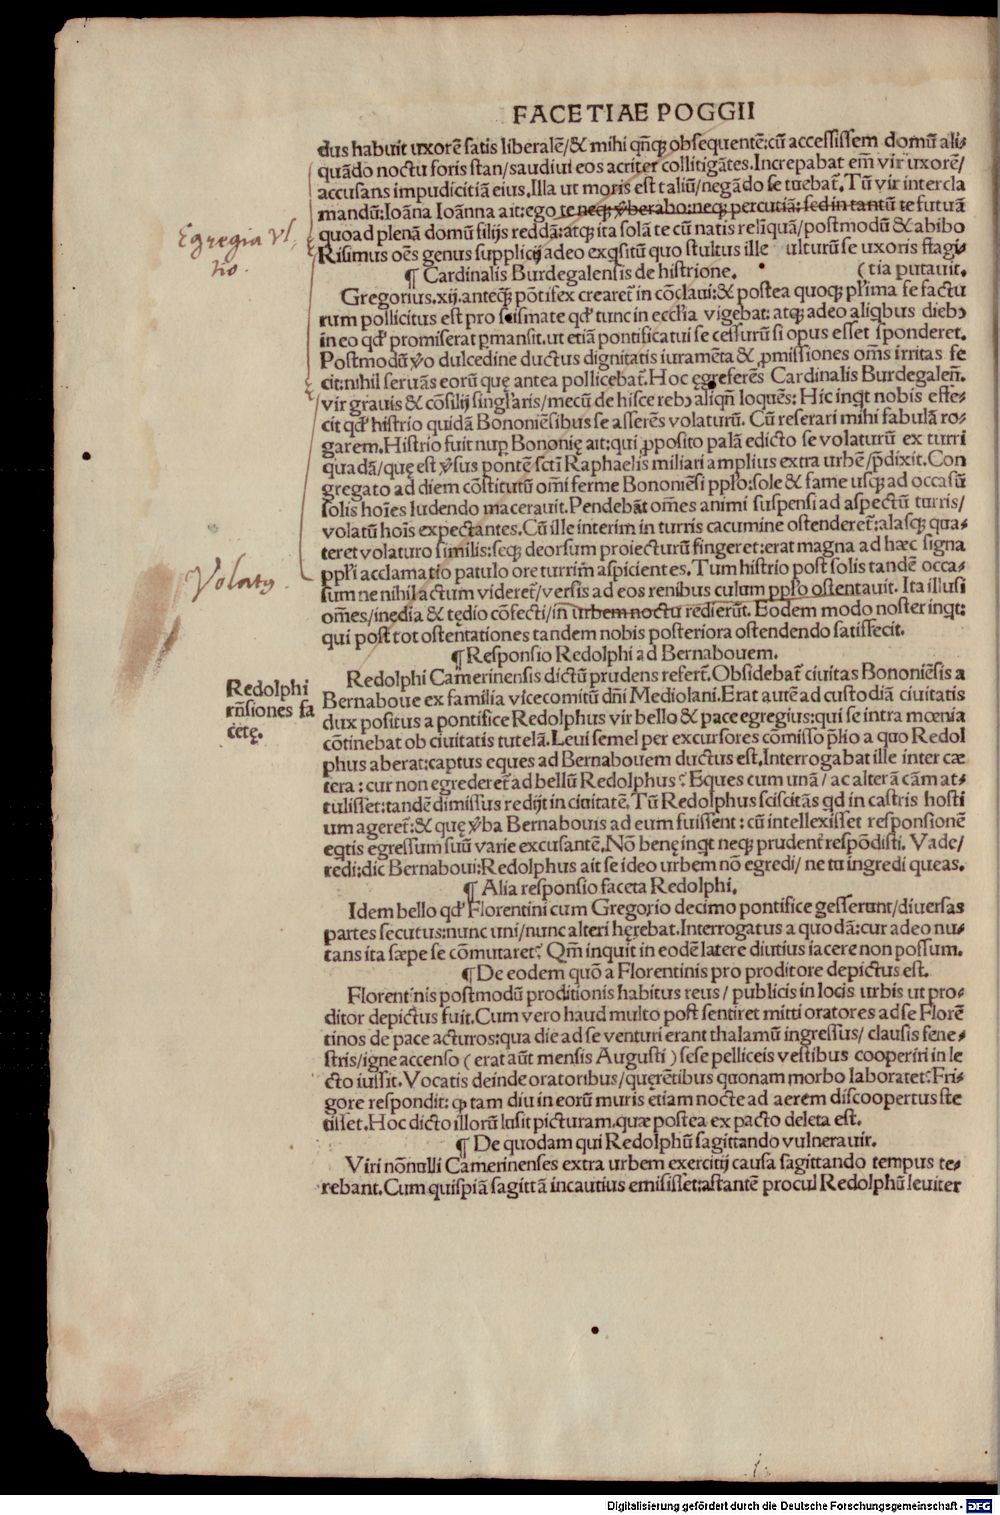 FACETIAE POGGII
dus habuit uxorē satis liberalē/& mihi qñqꝫ obsequentē:cū accessissem domū ali⸗
quādo noctu foris stan/saudiui eos acriter collitigātes.Increpabat em̄ vir uxorē/
accusans impudicitiā eius.Illa ut moris est taliū/negādo se tuebat̄.Tū vir intercla
mandū:Ioāna Ioānna ait:ego te neqꝫ v̄berabo:neqꝫ percutiā: sed in tantū te futuā
quoad plenā domū filijs reddā:atqꝫ ita solā te cū natis reliquā/postmodū & abibo
Risimus oēs genus supplicij adeo exqsitū quo stultus ille ulturū se uxoris flagi⸗
¶ Cardinalis Burdegalensis de histrione. (tia putauit.
Gregorius.xij.anteqꝫ pōtifex crearet̄ in cōclaui:& postea quoqꝫ pl̄ima se factu
rum pollicitus est pro scismate qd̄ tunc in eccl̄ia vigebat: atqꝫ adeo aliqbus dieb⁹
in eo qd̄ promiserat ꝑmansit.ut etiā pontificatui se cessurū si opus esset sponderet.
Postmodū v̄o dulcedine ductus dignitatis iuramēta & ꝓmissiones om̄s irritas fe
cit:nihil seruās eorū quę antea pollicebat̄.Hoc ęgreferēs Cardinalis Burdegaleñ.
vir grauis & cōsilij singl̄aris/mecū de hisce reb⁹ aliqñ loquēs: Hic inqt nobis effe⸗
cit qd̄ histrio quidā Bononiēsibus se asserēs volaturū. Cū referari mihi fabulā ro⸗
garem.Histrio fuit nuꝑ Bononię ait:qui ꝓposito palā edicto se volaturū ex turri
quadā/quę est v̄sus pontē sc̄ti Raphaelis miliari amplius extra urbē/p̄dixit.Con
gregato ad diem cōstitutū om̄i ferme Bononiēsi ppl̄o:sole & fame usqꝫ ad occasū
solis hoīes ludendo macerauit.Pendebāt om̄es animi suspensi ad aspectū turris/
volatū hoīs expectantes.Cū ille interim in turris cacumine ostenderet̄:alasqꝫ qua⸗
teret volaturo similis:seqꝫ deorsum proiecturū fingeret:erat magna ad hæc signa
ppl̄i acclamatio patulo ore turrim aspicientes.Tum histrio post solis tandē occa⸗
sum ne nihil actum videret̄/versis ad eos renibus culum ppl̄o ostentauit. Ita illusi
om̄es/inedia & tędio cōfecti/in urbem noctu redierūt. Eodem modo noster inqt:
qui post tot ostentationes tandem nobis posteriora ostendendo satisfecit.
¶ Responsio Redolphi ad Bernabouem.
Redolphi Camerinensis dictū prudens refert̄.Obsidebat̄ ciuitas Bononiēsis a
Bernaboue ex familia vicecomitū dñi Mediolani.Erat autē ad custodiā ciuitatis
dux positus a pontifice Redolphus vir bello & pace egregius:qui se intra mœnia
cōtinebat ob ciuitatis tutelā.Leui semel per excursores cōmisso p̄lio a quo Redol
phus aberat:captus eques ad Bernabouem ductus est.Interrogabat ille inter cæ
tera : cur non egrederet̄ ad bellū Redolphus? Eques cum unā/ ac alterā cām at⸗
tulisset:tandē dimissus redijt in ciuitatē.Tū Redolphus sciscitās qd in castris hosti
um ageret̄:& quę v̄ba Bernabouis ad eum fuissent : cū intellexisset responsionē
eqtis egressum suū varie excusantē.Nō benę inqt neqꝫ prudent̄ respōdisti. Vade/
redi:dic Bernaboui:Redolphus ait se ideo urbem nō egredi/ ne tu ingredi queas.
¶ Alia responsio faceta Redolphi.
Idem bello qd̄ Florentini cum Gregorio decimo pontifice gesserunt/diuersas
partes secutus:nunc uni/nunc alteri hęrebat.Interrogatus a quodā:cur adeo nu⸗
tans ita sæpe se cōmutaret? Qm̄ inquit in eodē latere diutius iacere non possum.
¶ De eodem quō a Florentinis pro proditore depictus est.
Florentinis postmodū proditionis habitus reus/ publicis in locis urbis ut pro⸗
ditor depictus fuit.Cum vero haud multo post sentiret mitti oratores ad se Florē
tinos de pace acturos:qua die ad se venturi erant thalamū ingressus/ clausis fene⸗
stris/igne accenso ( erat aūt mensis Augusti ) sese pelliceis vestibus cooperiri in le
cto iussit.Vocatis deinde oratoribus/quęrētibus quonam morbo laboraret:Fri⸗
gore respondit: ꝙ tam diu in eorū muris etiam nocte ad aerem discoopertus ste
tisset.Hoc dicto illorū lusit picturam.quæ postea ex pacto deleta est.
¶ De quodam qui Redolphū sagittando vulnerauit.
Viri nōnulli Camerinenses extra urbem exercitij causa sagittando tempus te⸗
rebant.Cum quispiā sagittā incautius emisisset:astantē procul Redolphū leuiter
Egregia Vl
tio.
Volatꝰ.
Redolphi
rñsiones fa
cetę.
Digitalisierung gefördert durch die Deutsche Forschungsgemeinschaft · DFG